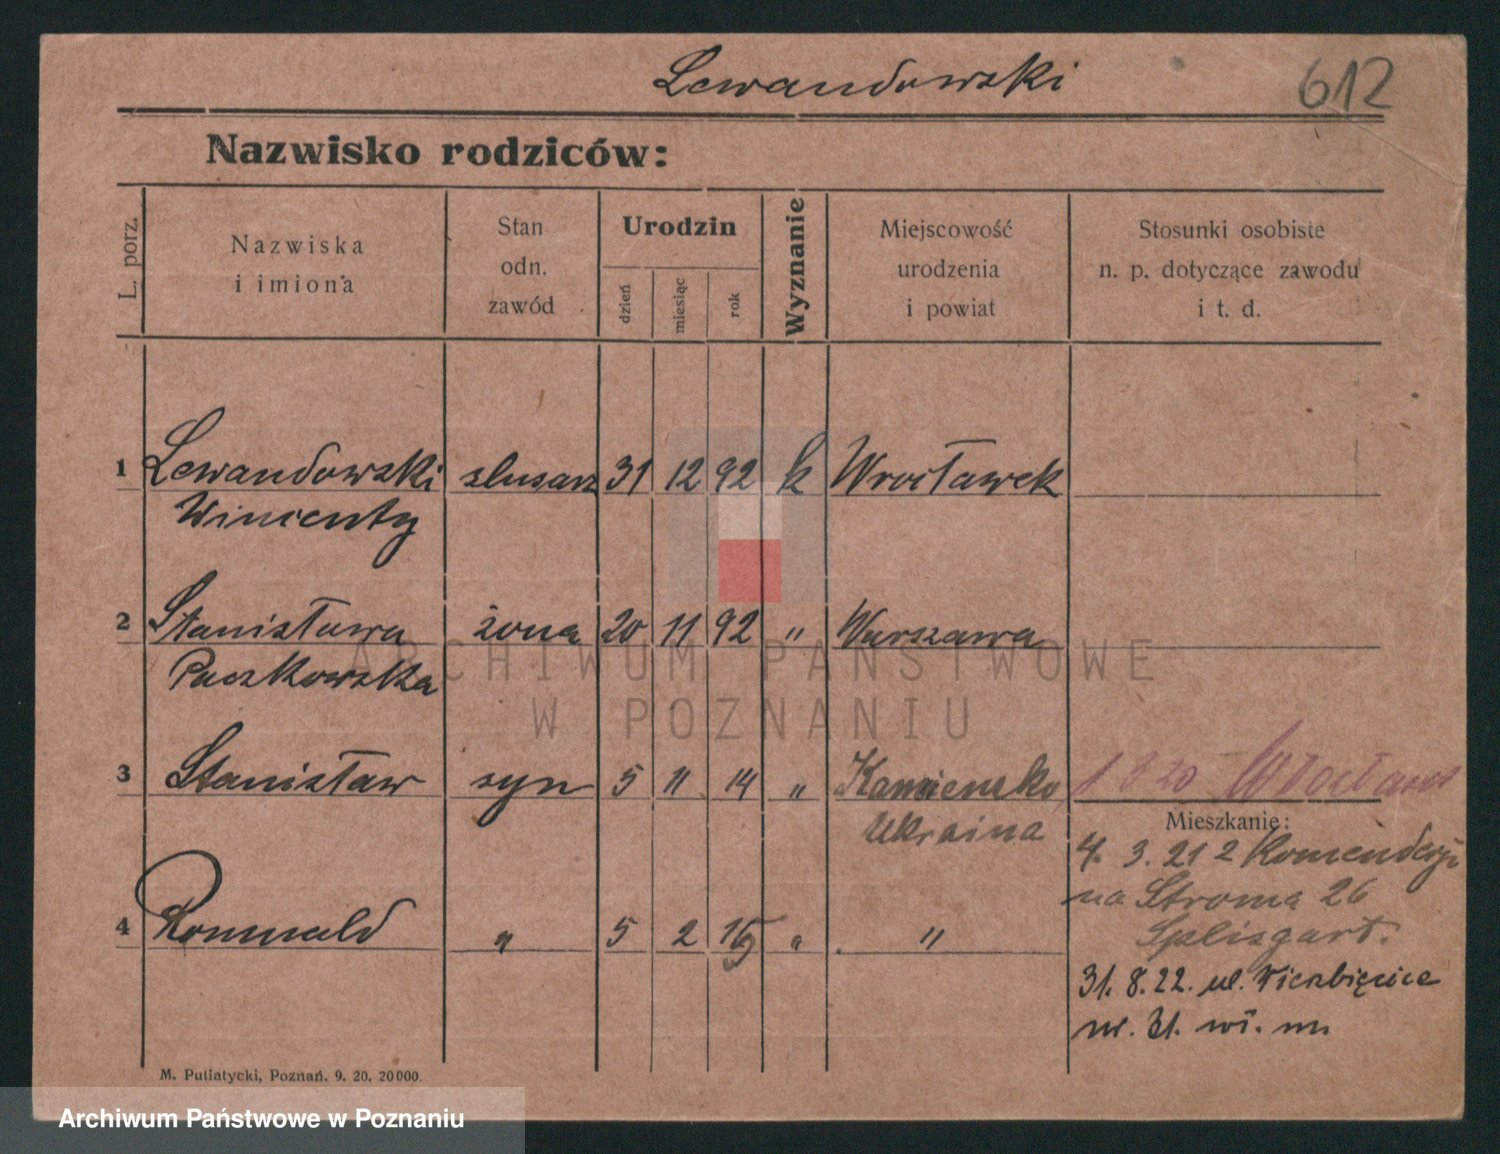 Lewandowski 612
Nazwisko rodziców:
L. porz.
Nazwiska
i imiona
Stan
odn.
zawód
Urodzin
dzień
miesiąc
rok
Wyznanie
Miejscowość
urodzenia
i powiat
Stosunki osobiste
n. p. dotyczące zawodu
i t. d.
1 Lewandowski slusarz 31 12 92 k Wrocławek
Wincenty
2 Stanisława żona 20 11 92 " Warszawa
Paczkowska
3 Stanisław syn 5 11 14 " Kamiensko
Ukraina
20
Mieszkanie:
4. 3. 21 z Komenderji
na Stroma 26
Splisgart.
4 Romuald " 5 2 " "
31. 8. 22. ul. Wierzbięcice
nr. 31.
M. Putiatycki, Poznań. 9. 20. 20000.
ARCHIWUM PAŃSTWOWE
W POZNANIU
Archiwum Państwowe w Poznaniu